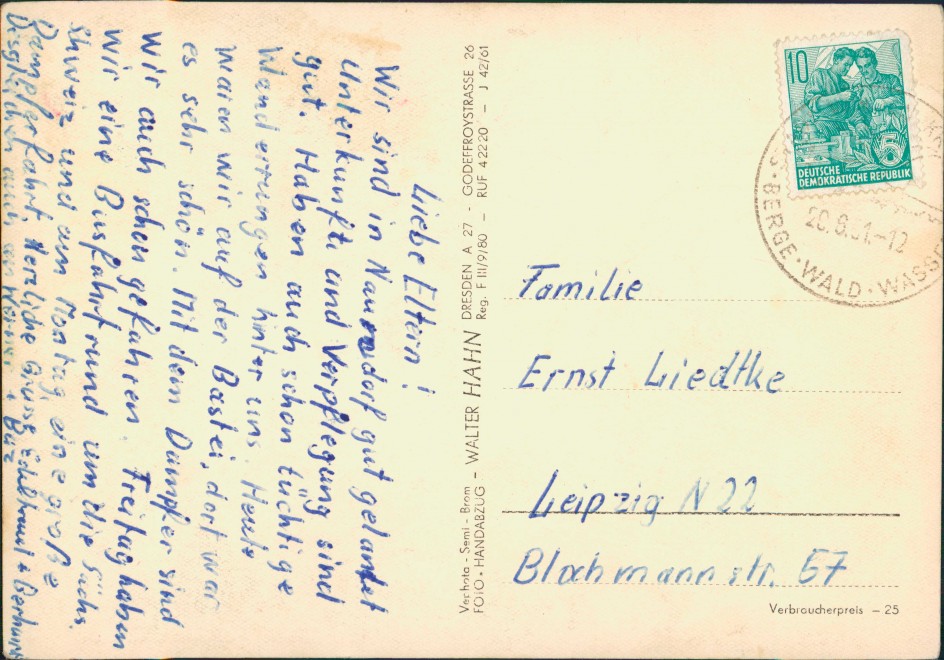 Liebe Eltern!
Wir sind in Naundorf gut gelandet
Unterkunft und Verpflegung sind
gut. Haben auch schon tüchtige
Wanderungen hinter uns. Heute
waren wir auf der Bastei, dort war
es sehr schön. Mit dem Dampfer sind
wir auch schon gefahren. Freitag haben
wir eine Busfahrt rund um die Sächs.
Schweiz und am Montag eine große
Dampferfahrt. Herzliche Grüsse Edeltraud + Gerhard
auch an Werner +
Vephota - Semi - Brom DRESDEN A 27 - GODEFFROYSTRASSE 26
FOTO - HANDABZUG - WALTER HAHN Reg. F III/9/80 — RUF 42220 — J 42/61
10
5
DEUTSCHE
DEMOKRATISCHE REPUBLIK
BERGE · WALD · WASSE
Familie
Ernst Liedtke
Leipzig N 22
Blochmannstr. 57
Verbraucherpreis — 25